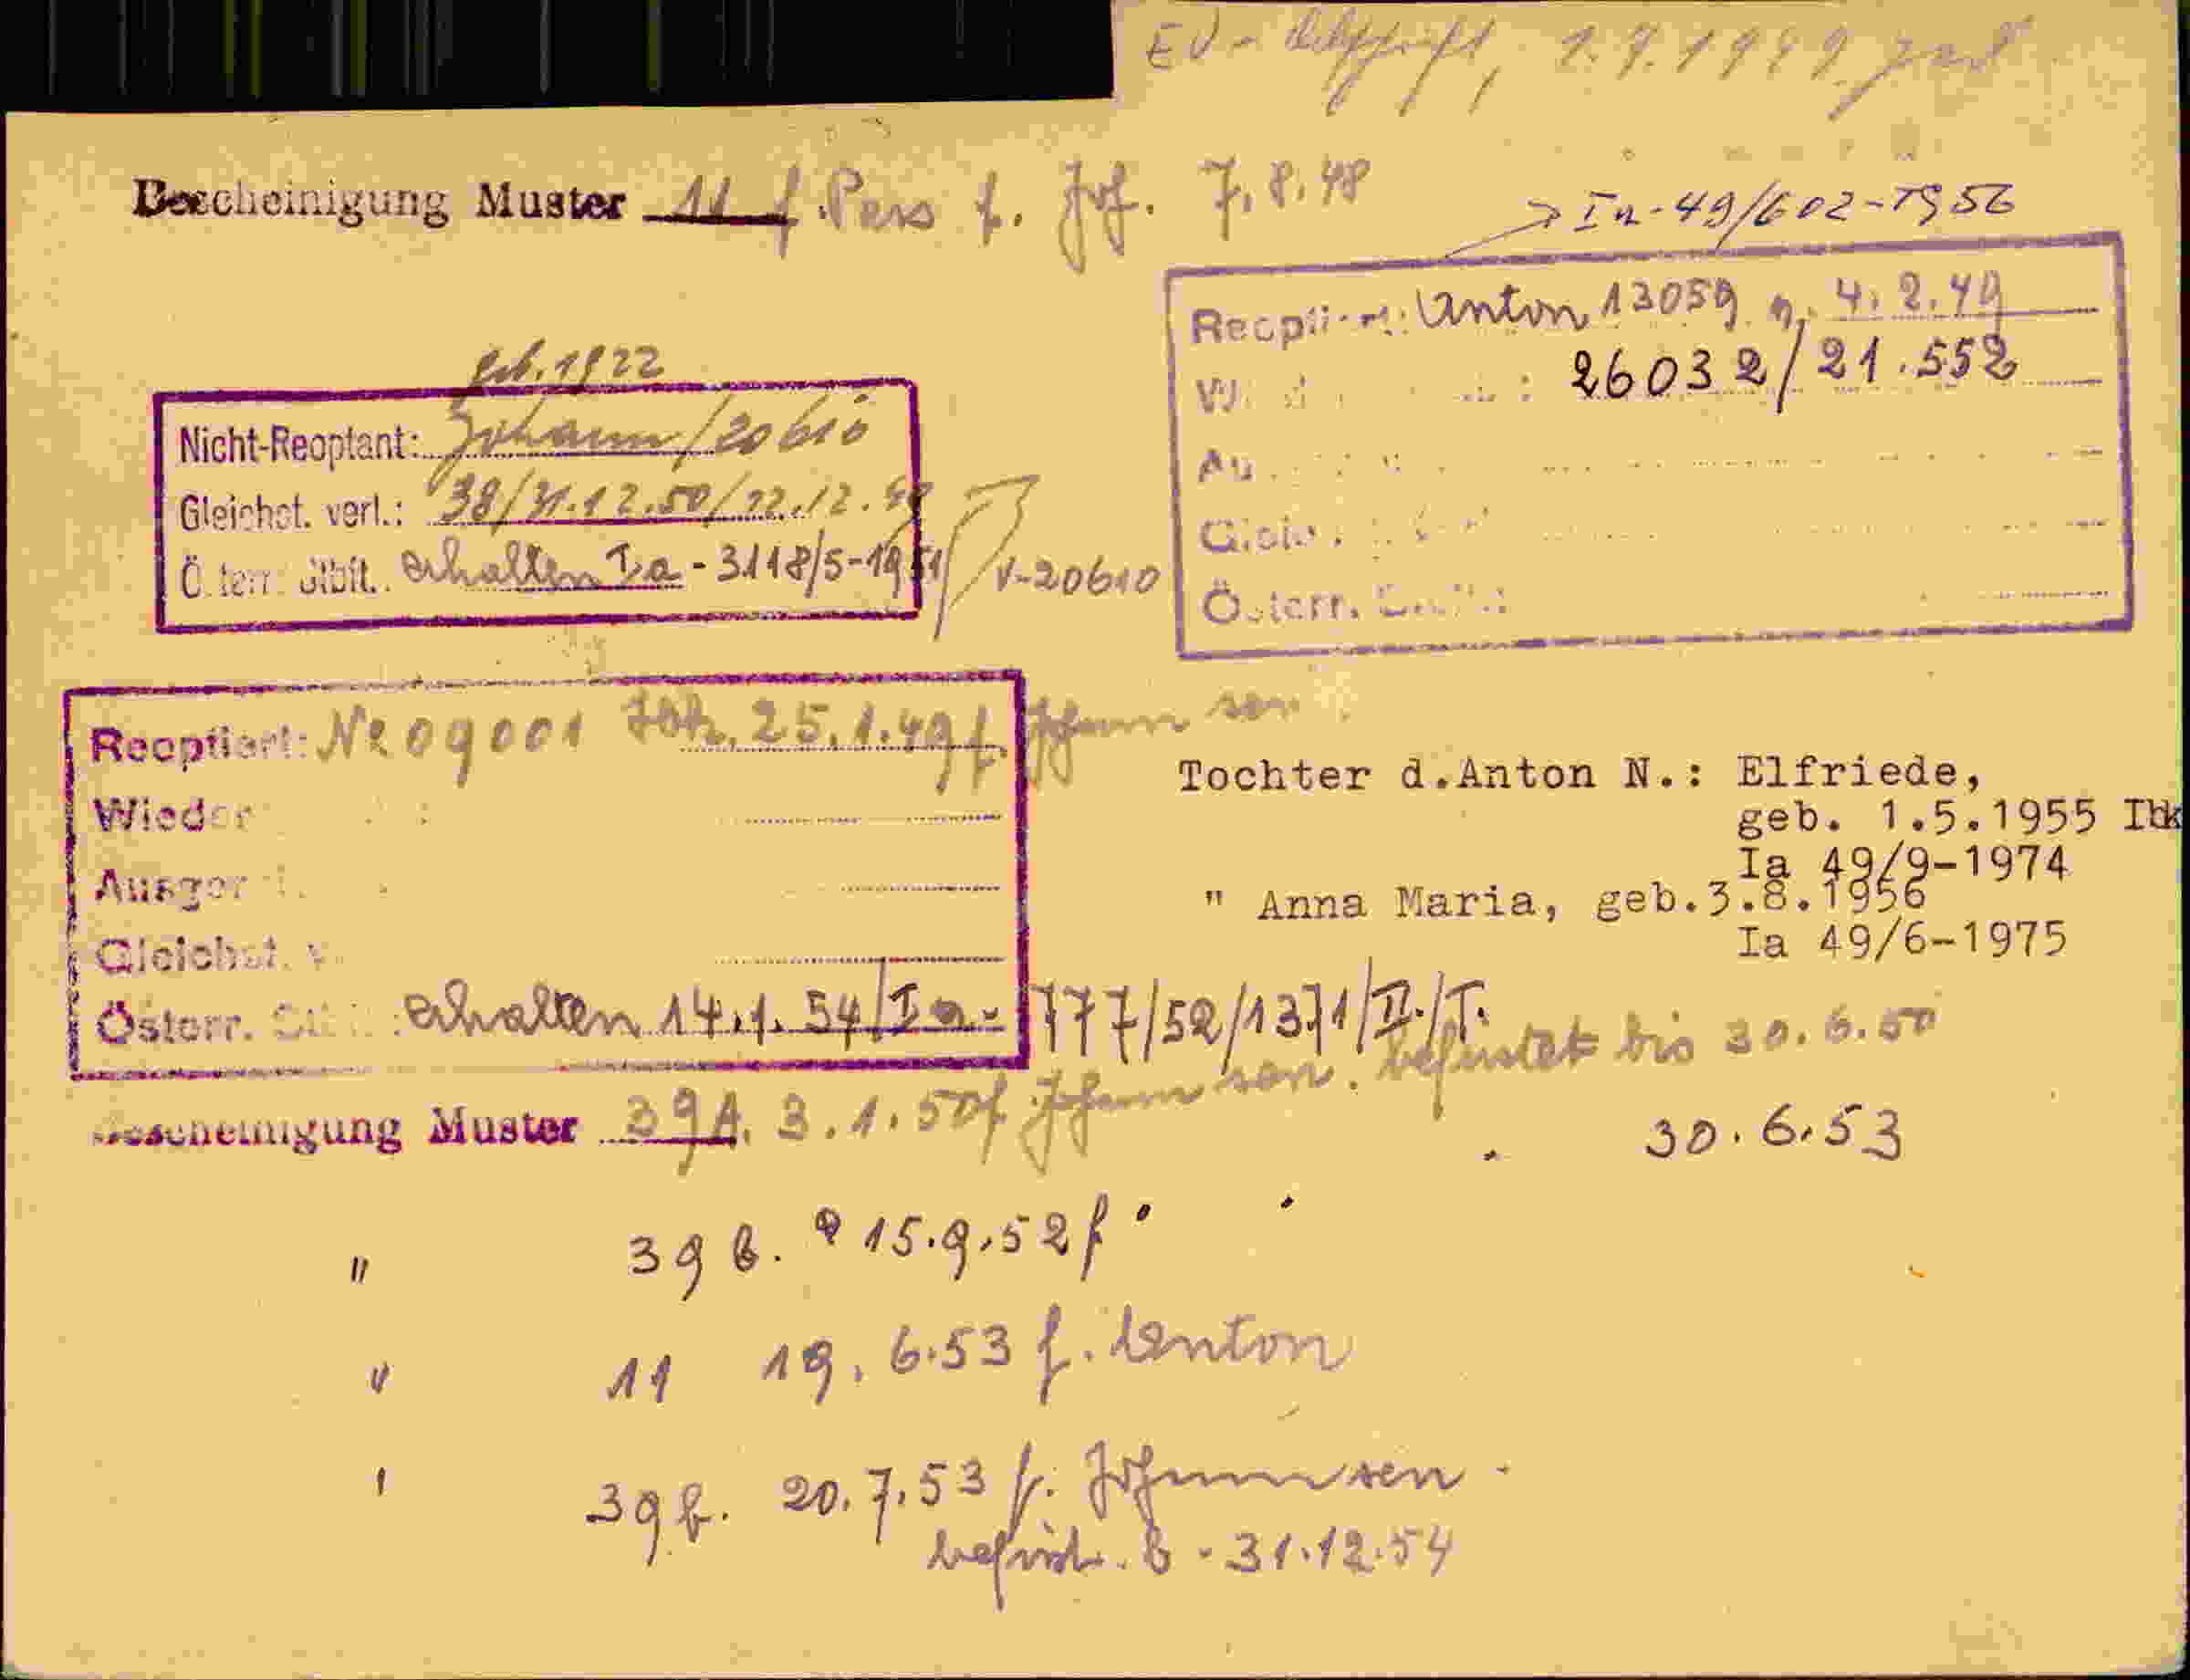 1.7.1999
Bescheinigung Muster 11 f. Pers f. Joh. 7.8.48
Ia-49/602-1956
Reoptiert: Anton 13059 v. 4.2.49
26032/21.552
geb. 1922
Nicht-Reoptant: Johann/20610
Gleichst. verl.: 38/31.12.50/22.12.49
Österr. Stbft. erhalten Ia-3118/5-1951
V-20610
Österr.
Reoptiert: No 09001 25.1.49 f. Johann sen
Wieder
Ausger
Gleichst. v.
Österr. erhalten 14.1.54/Ia-777/52/1371/II./T.
Tochter d.Anton N.: Elfriede,
geb. 1.5.1955 Ibk
Ia 49/9-1974
" Anna Maria, geb.3.8.1956
Ia 49/6-1975
Bescheinigung Muster 39A. 3.1.50 f. Johann sen. befristet bis 30.6.50
30.6.53
" 39 b. 15.9.52 f "
" 11 19.6.53 f. Anton
" 39 b. 20.7.53 f. Johann sen
befrist. b. 31.12.54